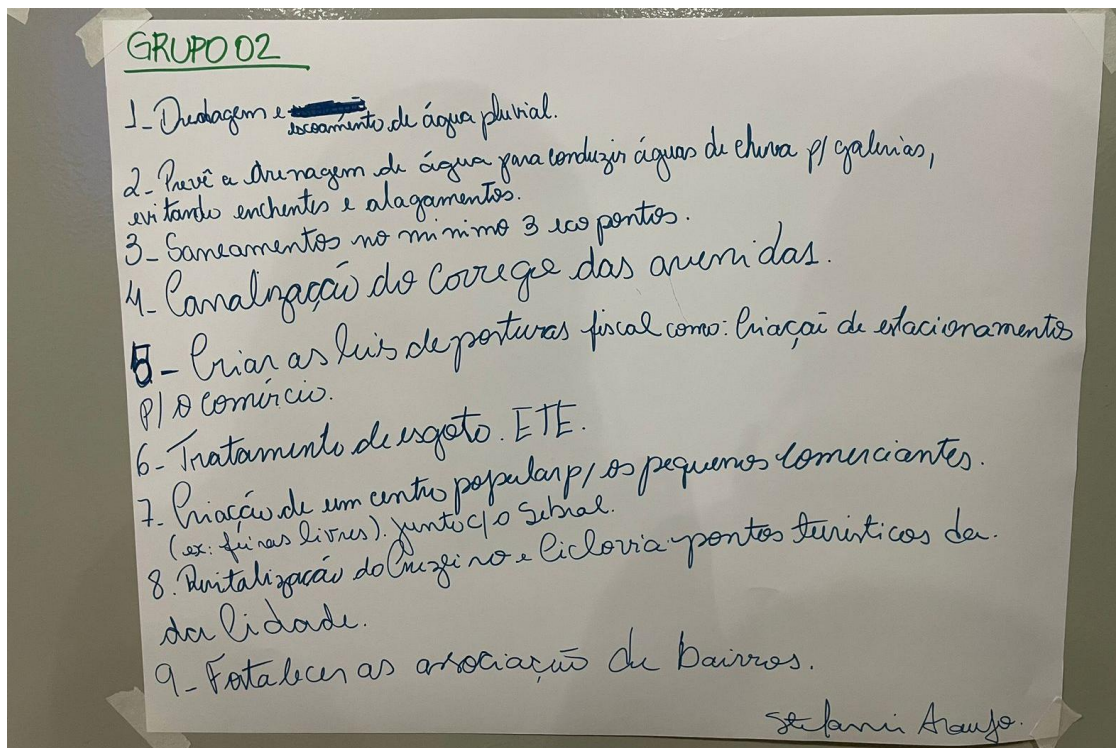 GRUPO 02
1- Dredagem e escoamento de água pluvial.
2- Prevê a drenagem de água para conduzir águas de chuva p/ galerias,
evitando enchentes e alagamentos.
3- Saneamentos no minimo 3 eco pontos.
4- Canalização do corrego das avenidas.
5- Criar as leis de posturas fiscal como: Criação de estacionamentos
p/ o comércio.
6- Tratamento de esgoto. ETE.
7- Criação de um centro popular p/ os pequenos comerciantes.
(ex: feiras livres). junto c/ o Sebral.
8. Revitalização do Cruzeiro e Ciclovia pontos turisticos da.
da Cidade.
9- Fortalecer as associação de bairros.
Stefanni Araujo.